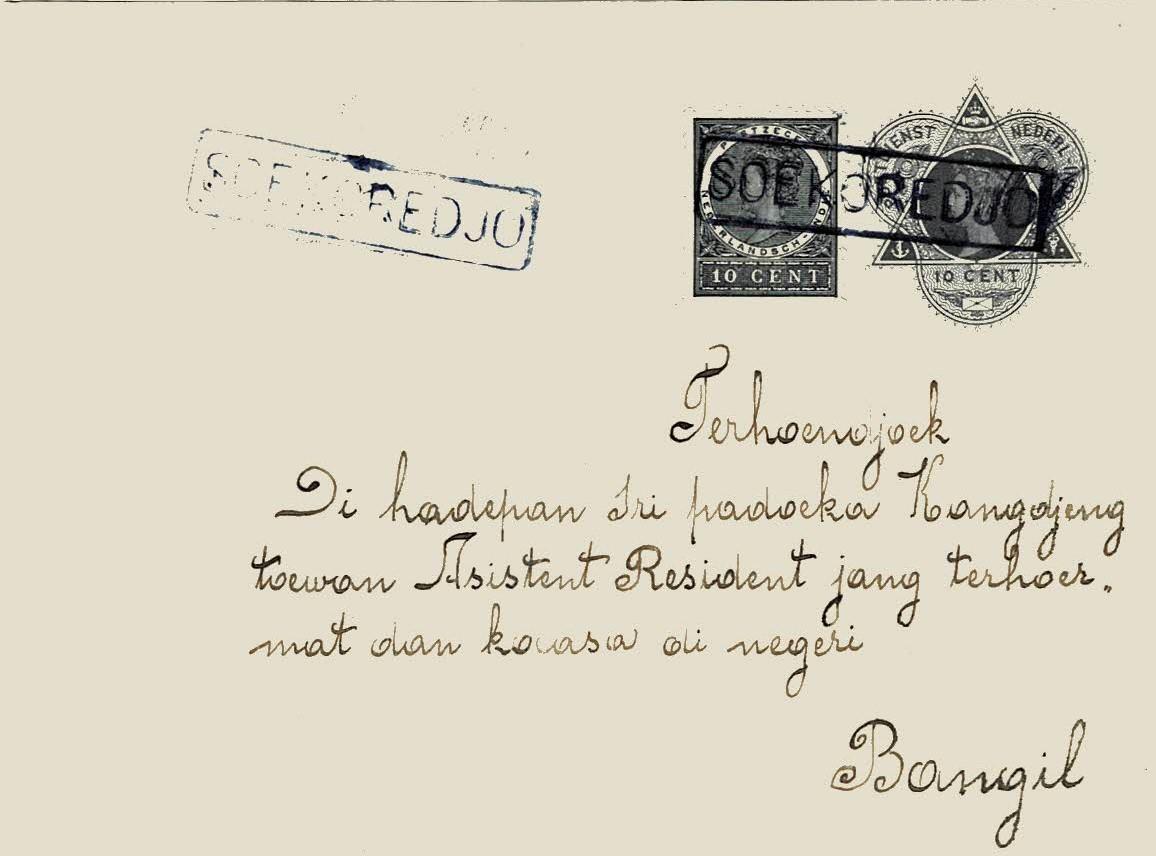 SOEKOREDJO
SOEKOREDJO
POSTZEGEL
NEDERLANDSCH-INDIE
10 CENT
10 CENT
Terhoendjoek
Di hadepan Sri padoeka Kangdjeng
toewan Asistent Resident jang terhoer„
mat dan koeasa di negeri
Bangil